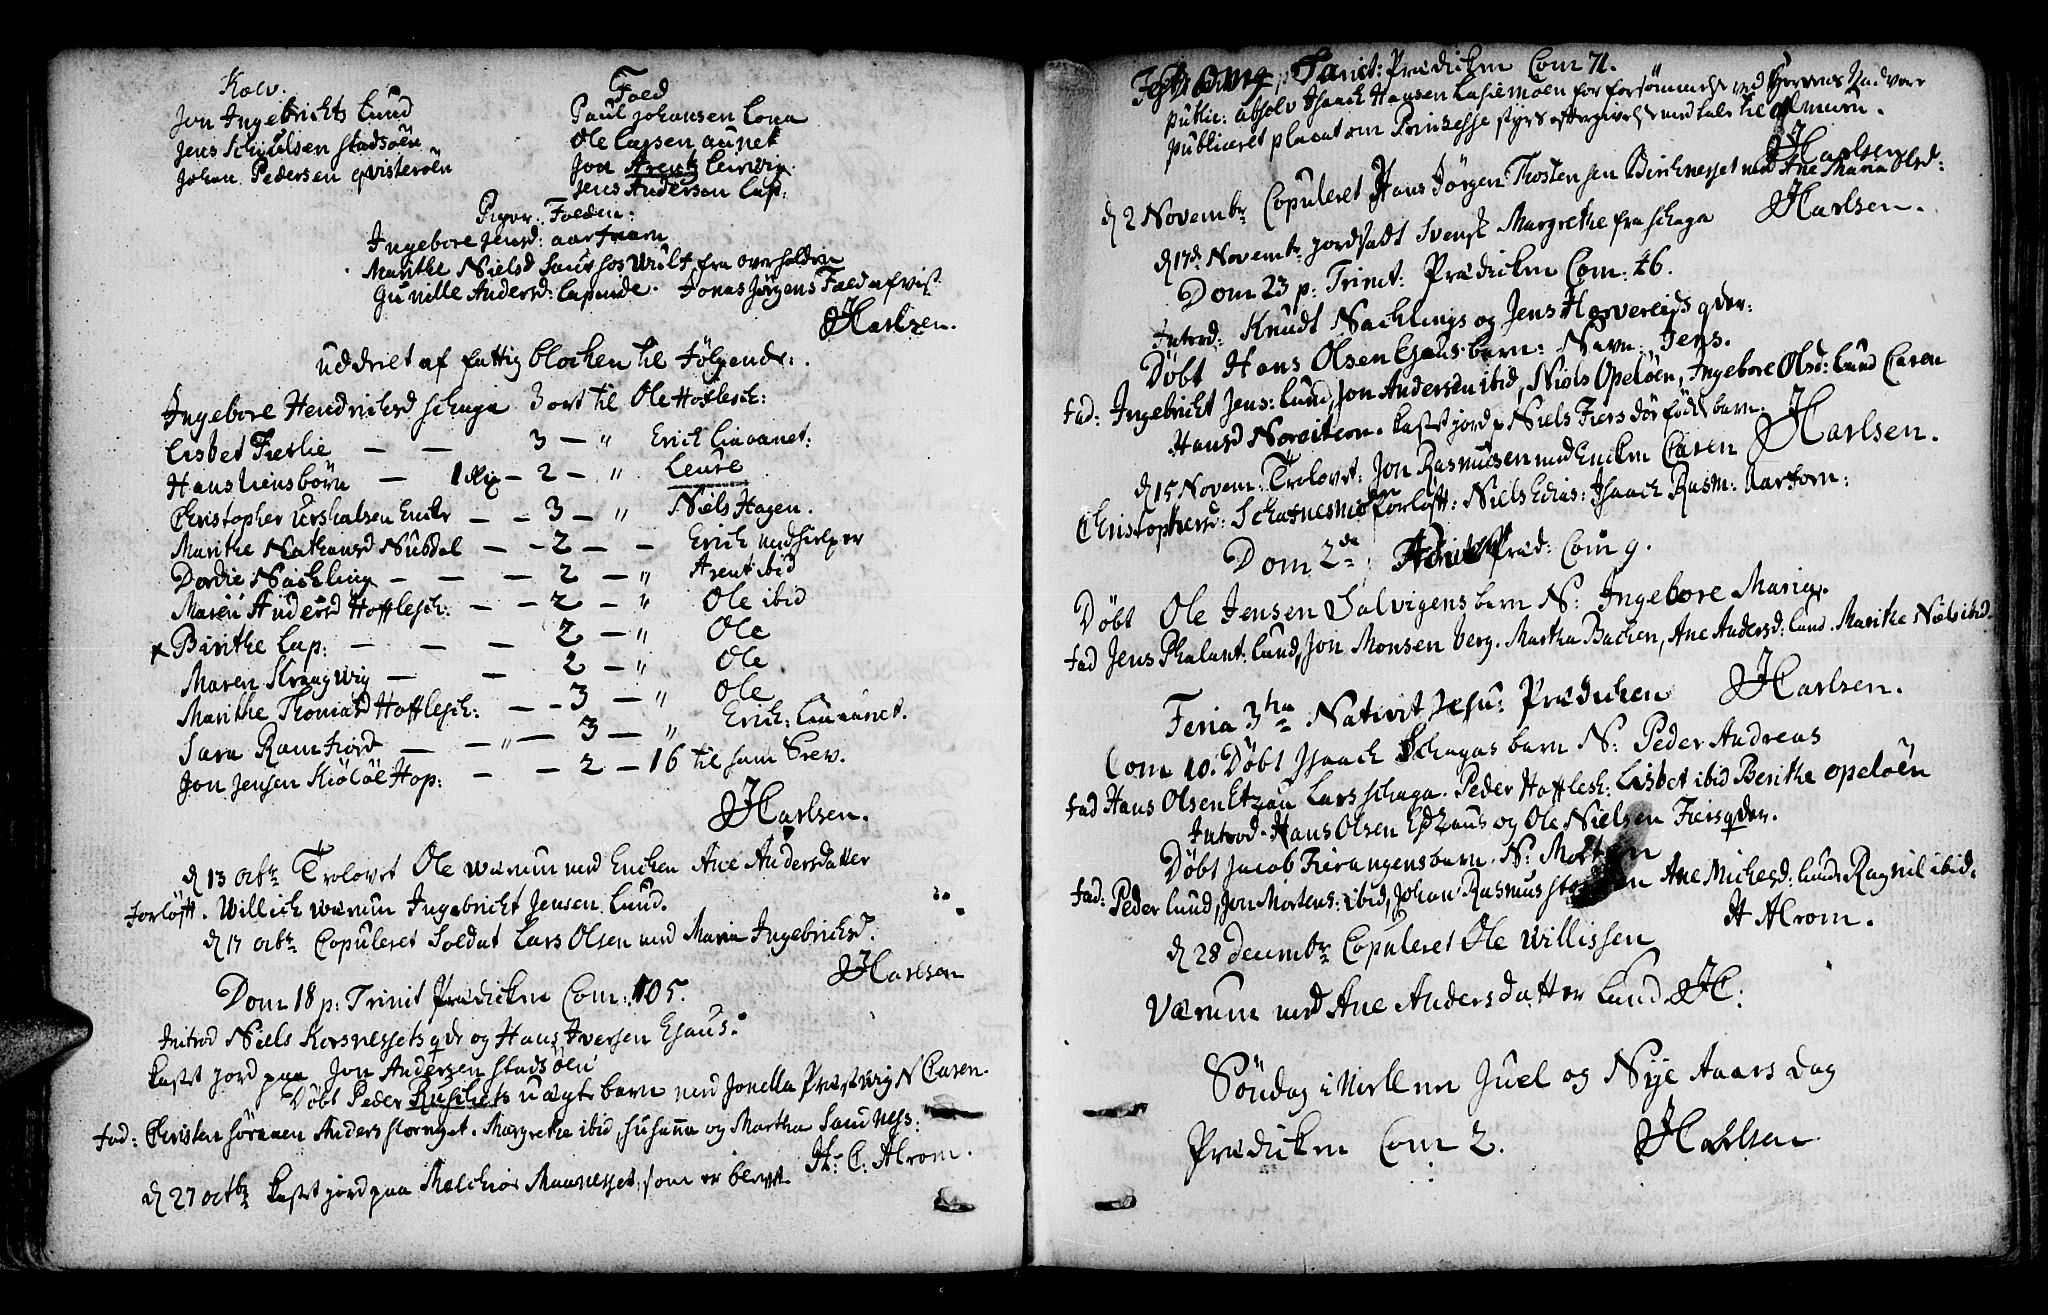 Kolv.
Jon Ingebrichts Lund
Jens Schiulsen stadsöen
Johan Pedersen qvisteröen
Foed
Paul Johansen Lona
Ole Larsen aunet
Jon Arentz Leirvig
Jens Andersen Lap:
Piger. Folden:
Ingebore Jensd: aarfor
Marithe Nielsd
fra overholden
Gunille Andersd: Lapinde. Jonas Jörgens Foed afvist
JHarlsen.
uddelet af fattig blochen til Fölgende:
Ingebore Hendrichsd schaga 3 ort til Ole Hofflesch:
Lisbet Fierlie — — 3 — " Erich Liavanet:
Hans Liensbörn — 1 Rix — 2 — " Leure
Christopher Enche — — 3 — " Niels Hagen.
Marithe Nathansd Nubdal — — 2 — — Erich medhielper
Dordie Nachling — — — 2 — " Arent ibid
Maren Andersd Hofflesch: — — 2 — " Ole ibid
x Birithe Lap: — — — 2 — " Ole
Maren Kragwig — — 2 — " Ole
Marithe Thomasd Hofflesch: — — 3 — " Ole
Sara Ramfiord — — " — 3 — " Erich: Liavanet.
Jon Jensen Kiölöe Hop: — — 2 — 16 til ham Srev.
JHarlsen.
d 13 octbr Trolovet Ole Wærum med Enchen Ane Andersdatter
Forlöft. Willich Wærum Ingebricht Jensen Lund.
d 17 octbr Copuleret Soldat Lars Olsen med Maria Ingebrichtsd.
JHarlsen
Dom 18 p: Trinit Prædicken Com: 105.
Introd Niels Korsnessets qde og Hans Iversen Ezaus.
kastet jord paa Jon Andersen stadsöen
Döbt Peder Ruschets uægte barn med Jonella Præstwig N Caren.
Fad: Christen Anders stornget. Margrethe ibid, Susanna og Martha Sandness:
H: C: Alrom.
d 27 octbr kastet jord paa Melchior Maanesset, som er blevet
Trinit: Prædicken Com 71.
public: absolv Isaach Hansen Lassemoen for forsömmelse ved Herrens Nadvere
publiceret placat om Prinsesse styrs eftergivelse med tale til almuen.
JHarlsen
d 2 Novembr Copuleret Hans Jörgen Tostensen Birchnesset med Ane Maria Olsd:
JHarlsen.
d 17de Novembr jordsadt Svensk Margrethe fra schaga
Dom 23 p: Trinit: Prædicken Com. 46.
Introd: Knudt Nachlings og Jens Harvereids qder:
Döbt Hans Olsen Ezaus barn: Navn: Jens.
Fad: Ingebricht Jens: Lund, Jon Andersen ibid, Niels Opelöen, Ingebore Olsd: Lund Caren
Hansd kastet jord paa Niels Fiers dörfödt barn.
JHarlsen.
d 15 Novem: Trolovet: Jon Rasmussen med Enchen Caren
Christophersd: forlöft: Niels Isaach Rasm: aarforn:
Dom 2de Advent Præd: Com 9.
Döbt Ole Jensen Salvigens barn N: Ingebore Maria.
Fad Jens Lund, Jon Monsen berg. Martha Bachen, Ane Andersd: Lund. Marithe Niels ibid.
JHarlsen.
Feria 3tia Nativit Jesu: Prædichen
Com 10. Döbt Isaach Schagas barn N: Peder Andreas
Fad Hans Olsen Etzau Lars schaga. Peder Hofflesch: Lisbet ibid Berithe opelöen
Introd. Hans Olsen Edzaus og Ole Nielsen Fiers qder.
Döbt Jacob Fierangens barn. N: Morten
Fad: Peder Lund, Jon Mortens: ibid, Johan Rasmus Ane Michelsd: Lund Ragnil ibid.
H Alrom.
d 28 decembr Copuleret Ole Willissen
Værum med Ane Andersdatter Lund. JH:
Söndag imellem Juel og Nye Aars dag
Prædicken Com 2.
JHarlsen